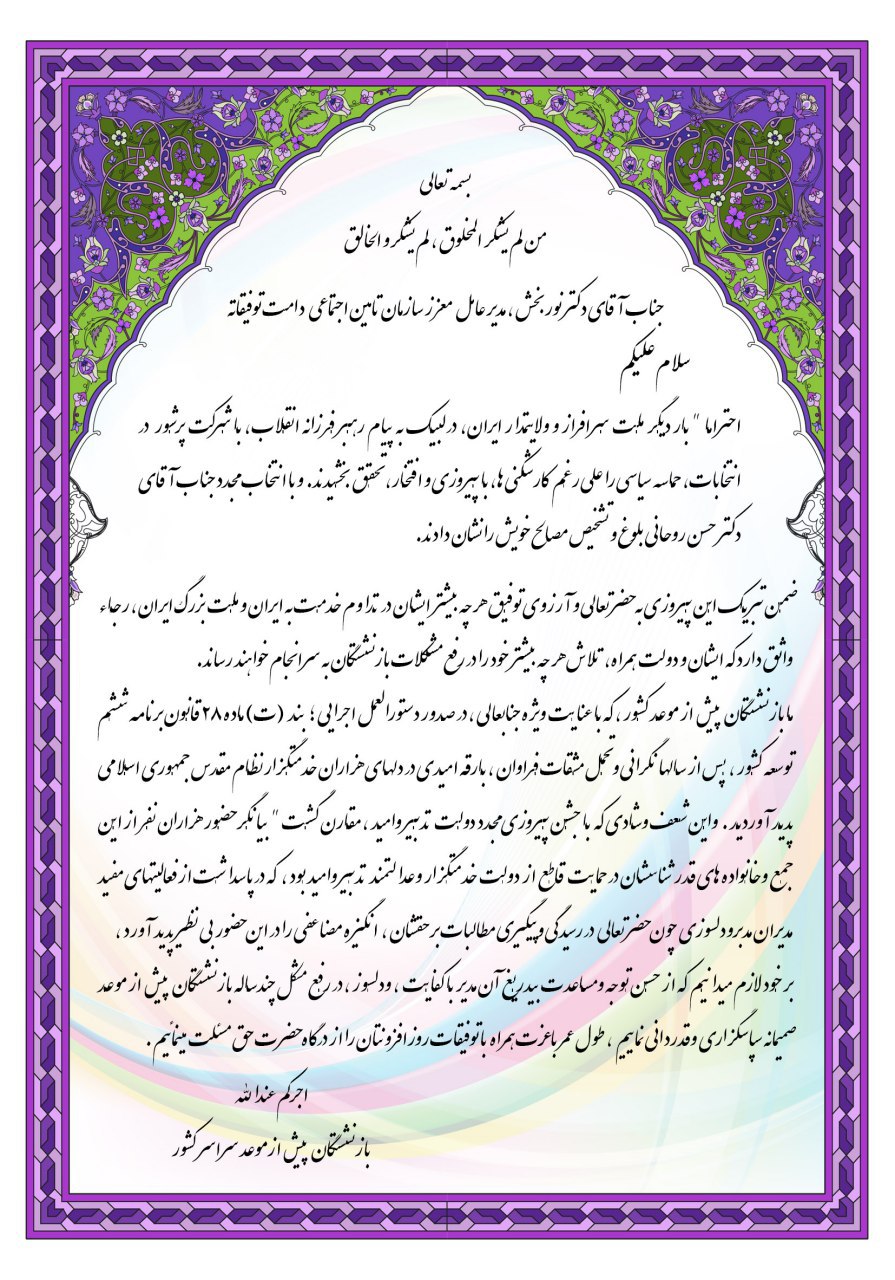 بسمه تعالی
من لم یشکر المخلوق ، لم یشکر و الخالق
جناب آقای دکتر نوربخش ، مدیر عامل معزز سازمان تامین اجتماعی دامت توفیقاته
سلام علیکم
احتراما " بار دیگر ملت سرافراز و ولایتمدار ایران، در لبیک به پیام رهبر فرزانه انقلاب، با شرکت پرشور در
انتخابات، حماسه سیاسی را علی رغم کارشکنی ها، با پیروزی و افتخار، تحقق بخشیدند. و با انتخاب مجدد جناب آقای
دکتر حسن روحانی بلوغ و تشخیص مصالح خویش را نشان دادند.
ضمن تبریک این پیروزی به حضرتعالی و آرزوی توفیق هر چه بیشتر ایشان در تداوم خدمت به ایران و ملت بزرگ ایران ، رجاء
واثق دارد که ایشان و دولت همراه، تلاش هر چه بیشتر خود را در رفع مشکلات بازنشستگان به سرانجام خواهند رساند.
ما بازنشستگان پیش از موعد کشور ، که با عنایت ویژه جنابعالی ، در صدور دستورالعمل اجرایی ؛ بند (ت) ماده ۲۸ قانون برنامه ششم
توسعه کشور ، پس از سالها نگرانی و تحمل مشقات فراوان ، بارقه امیدی در دلهای هزاران خدمتگزار نظام مقدس جمهوری اسلامی
پدید آوردید . واین شعف وشادی که با جشن پیروزی مجدد دولت تدبیر وامید ، مقارن گشت " بیانگر حضور هزاران نفر از این
جمع و خانواده های قدر شناسشان در حمایت قاطع از دولت خدمتگزار وعدالتمند تدبیر وامید بود ، که در پاسداشت از فعالیتهای مفید
مدیران مدبر و دلسوزی چون حضرتعالی در رسیدگی و پیگیری مطالبات بر حقشان ، انگیزه مضاعفی را در این حضور بی نظیر پدید آورد ،
بر خود لازم میدانیم که از حسن توجه ومساعدت بیدریغ آن مدیر باکفایت ، ودلسوز ، در رفع مشکل چندساله بازنشستگان پیش از موعد
صمیمانه سپاسگزاری وقدردانی نماییم ، طول عمر باعزت همراه باتوفیقات روز افزونتان را از درگاه حضرت حق مسئلت مینمائیم .
اجرکم عندالله
بازنشستگان پیش از موعد سراسر کشور